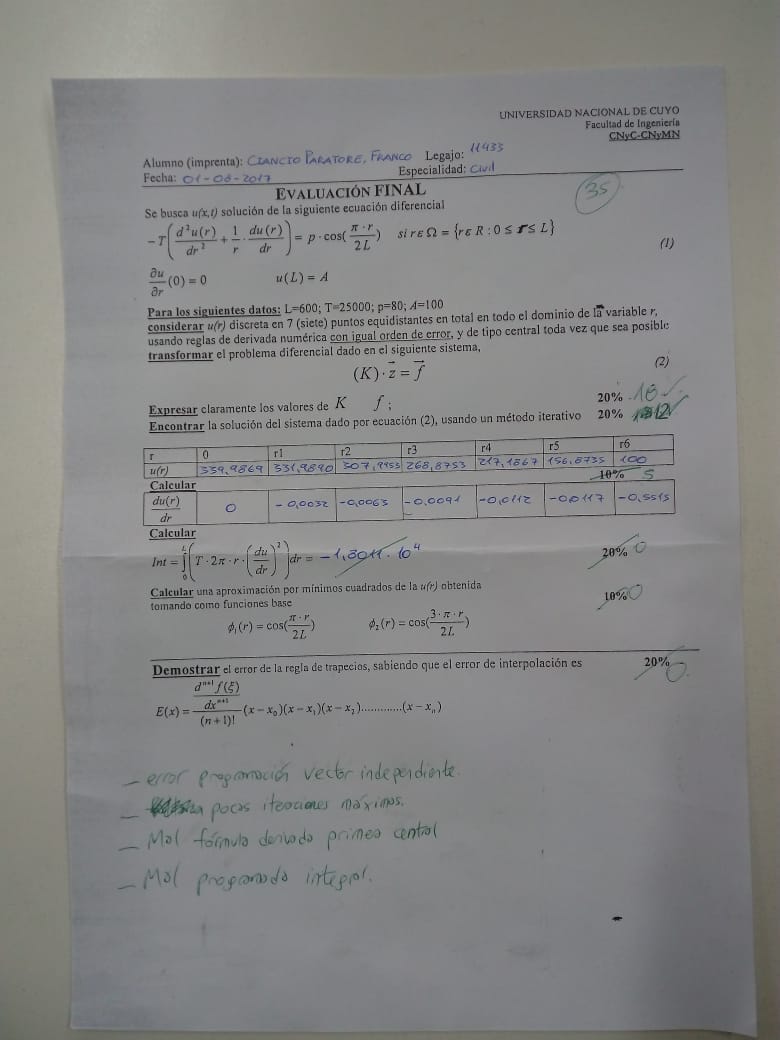 UNIVERSIDAD NACIONAL DE CUYO
Facultad de Ingeniería
CNyC-CNyMN
Alumno (imprenta): CIANCIO PARATORE, FRANCO Legajo: 11433
Fecha: 01-08-2017 Especialidad: Civil
EVALUACIÓN FINAL
35
Se busca u(x,t) solución de la siguiente ecuación diferencial
-T(d²u(r)/dr² + 1/r · du(r)/dr) = p·cos(π·r/2L) si r ε Ω = {r ε R : 0 ≤ r ≤ L}
(1)
∂u/∂r (0) = 0 u(L) = A
Para los siguientes datos: L=600; T=25000; p=80; A=100
considerar u(r) discreta en 7 (siete) puntos equidistantes en total en todo el dominio de la variable r,
usando reglas de derivada numérica con igual orden de error, y de tipo central toda vez que sea posible
transformar el problema diferencial dado en el siguiente sistema,
(K)·z = f (2)
Expresar claramente los valores de K f ; 20% 18
Encontrar la solución del sistema dado por ecuación (2), usando un método iterativo 20% 12
r 0 r1 r2 r3 r4 r5 r6
u(r) 339,9869 331,9890 307,9953 268,8753 217,1867 156,8735 100
Calcular 10% 5
du(r)/dr 0 -0,0032 -0,0063 -0,0091 -0,0112 -0,0117 -0,5515
Calcular
Int = ∫₀ᴸ (T·2π·r·(du/dr)²) dr = -1,3011·10⁴ 20% 0
Calcular una aproximación por mínimos cuadrados de la u(r) obtenida
tomando como funciones base 10% 0
ϕ₁(r) = cos(π·r/2L) ϕ₂(r) = cos(3·π·r/2L)
Demostrar el error de la regla de trapecios, sabiendo que el error de interpolación es 20% 0
E(x) = (dⁿ⁺¹f(ξ)/dxⁿ⁺¹)/(n+1)! (x-x₀)(x-x₁)(x-x₂).............(x-xₙ)
- error programación vector independiente.
- pocas iteraciones máximas.
- Mal fórmula derivada primera central
- Mal programada integral.